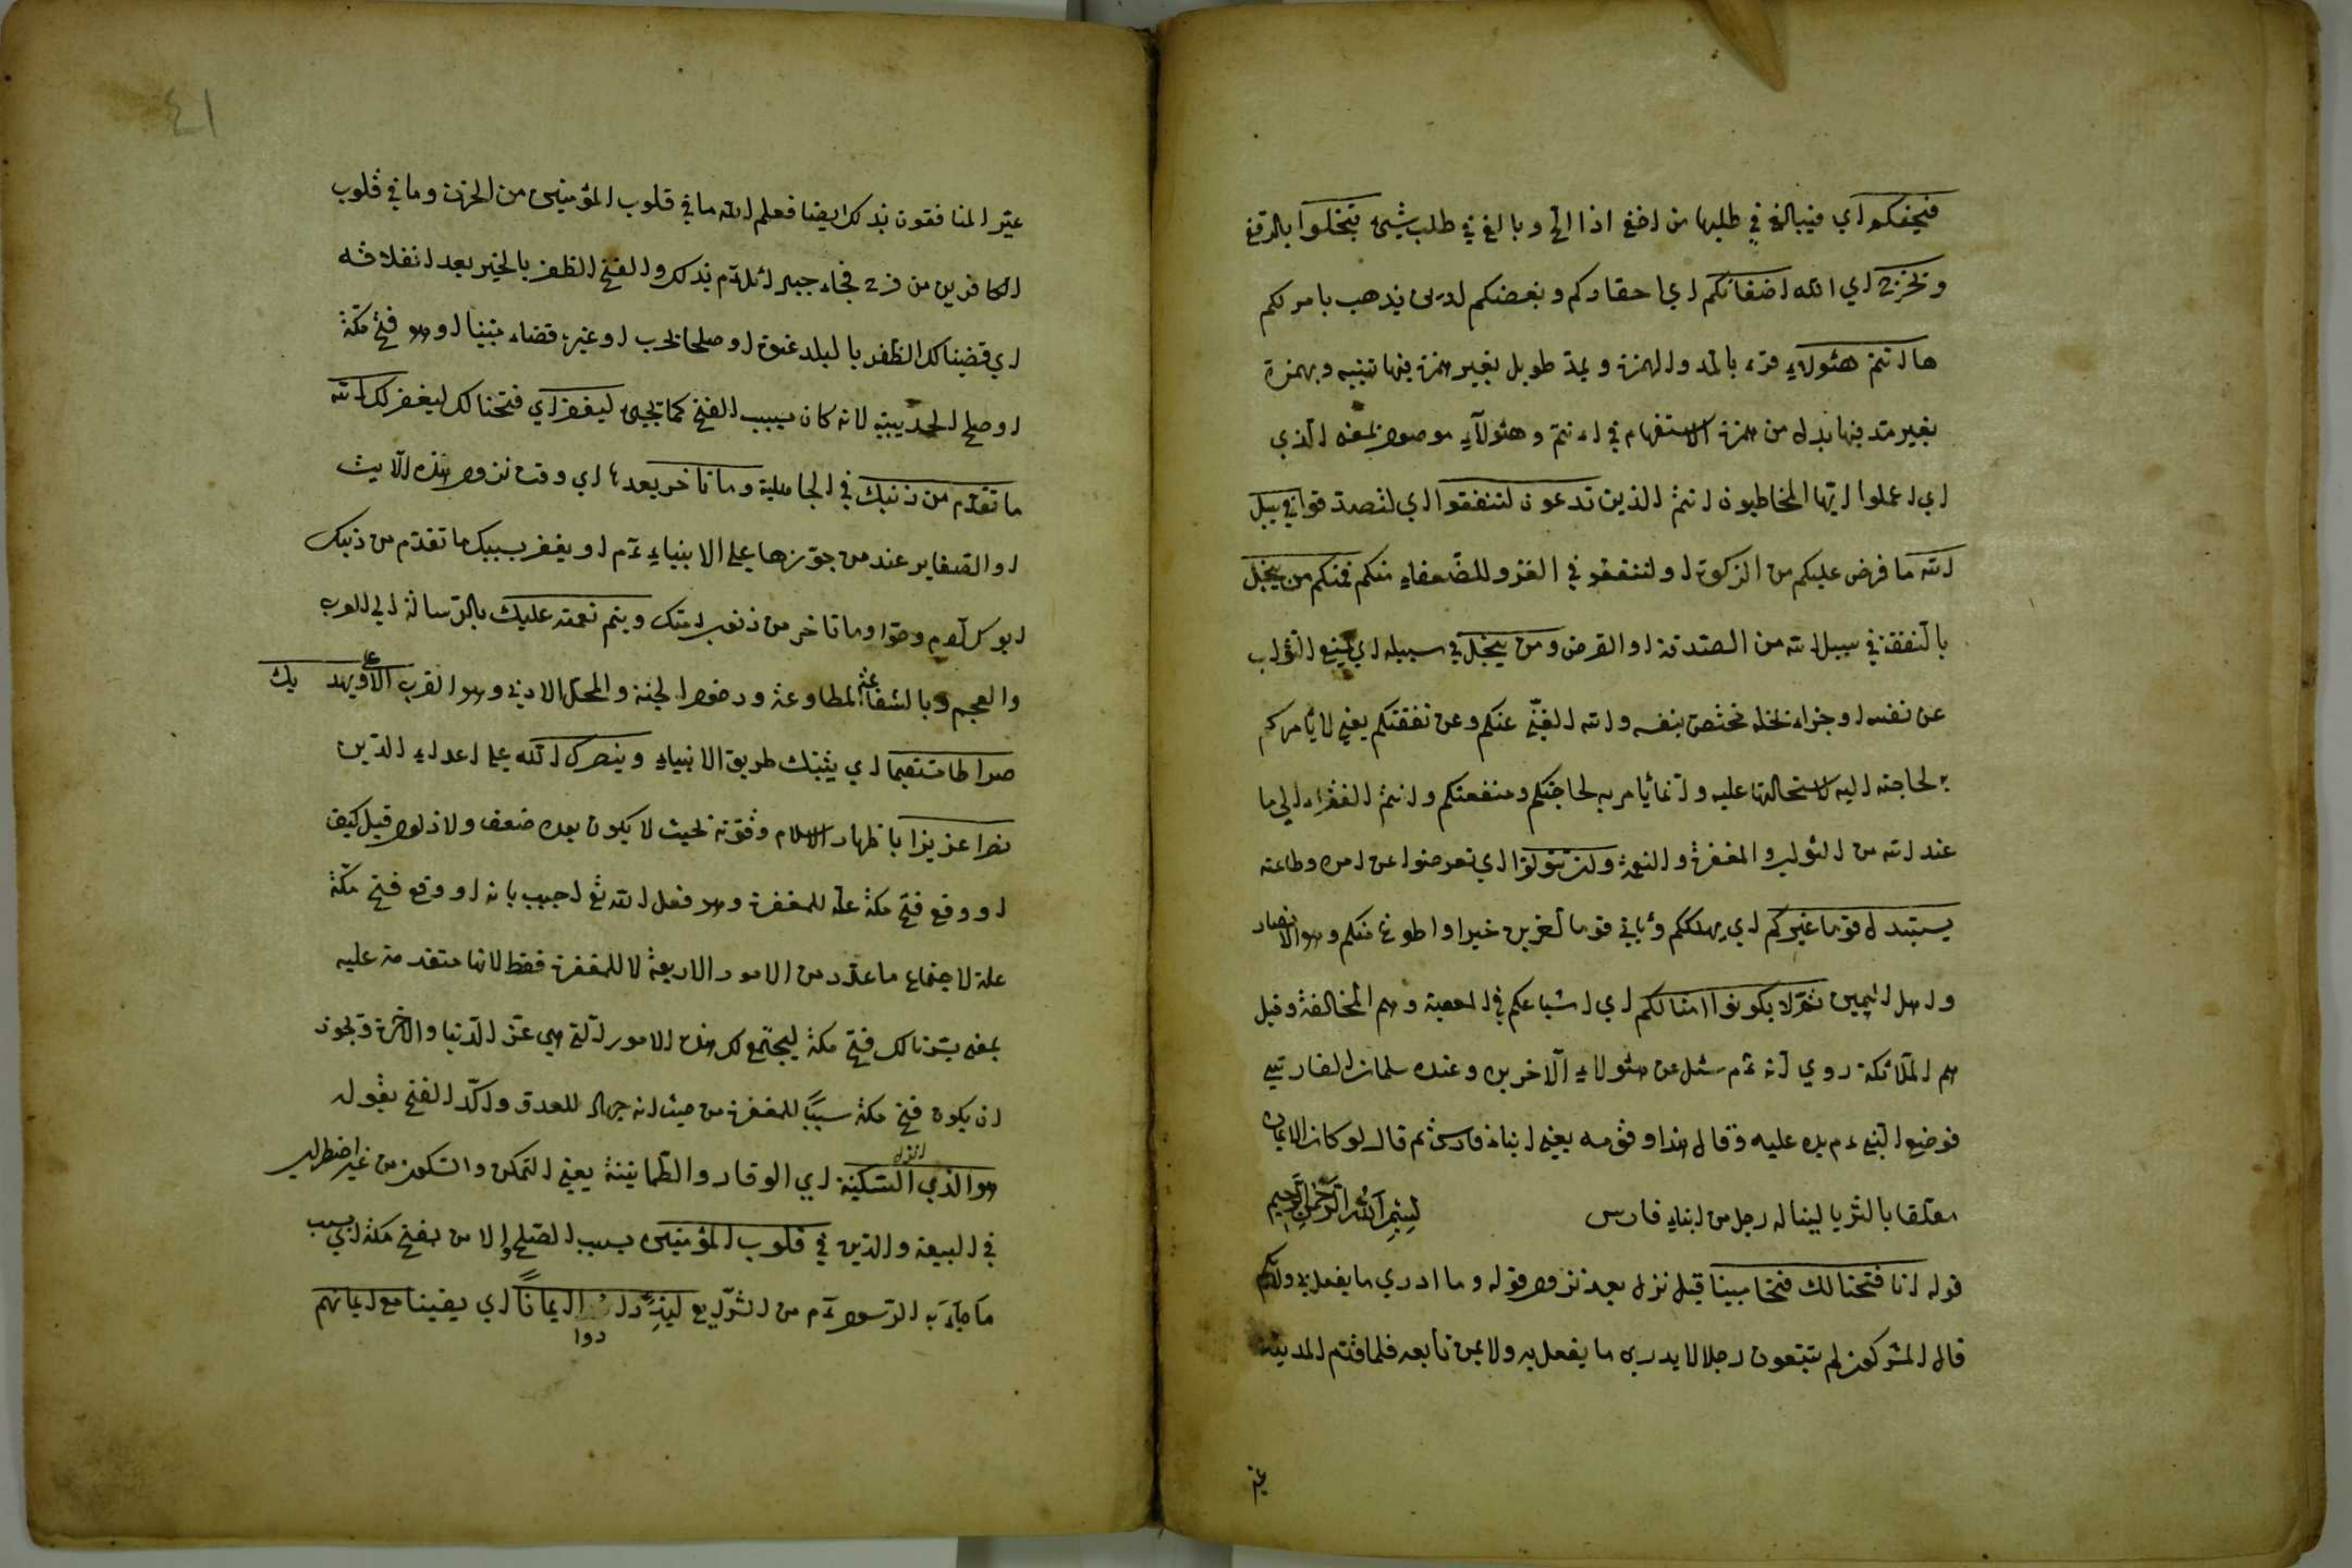 فيحفكم اي فيبالغ في طلبها من احفى اذا الح وبالغ في طلب شيئ تبخلوا بالدفع
ويخرج اي الله اضغانكم اي احقادكم وبغضكم لدين يذهب باموالكم
ها انتم هئولاء قرء بالمد والهمزة وبمد طويل بغير همزة فيها تنبيه وبهمزة
بغير مد فيها بدل من همزة الاستفهام في ءانتم وهئولاء موصول بمعنى الذي
اي اعملوا ايها المخاطبون انتم الذين تدعون لتنفقوا اي لتصدقوا في سبيل
الله ما فرض عليكم من الزكوة او لتنفقوا في الغزو للضعفاء منكم فمنكم من يبخل
بالنفقة في سبيل الله من الصدقة او القرض ومن يبخل في سبيله اي يمنع الثواب
عن نفسه او جزاء بخله مختص بنفسه والله الغني عنكم وعن نفقتكم يعني لا يأمركم
لحاجته اليه لاستحالتها عليه وانما يأمر به لحاجتكم ومنفعتكم وانتم الفقراء الى ما
عند الله من الثواب والمغفرة والنعمة وان تتولوا اي تعرضوا عن امره وطاعته
يستبدل قوما غيركم اي يهلككم ويأتي قوما آخرين خيرا واطوع منكم وهو الانصار
واهل اليمن ثم لا يكونوا امثالكم اي اشباعكم في المعصية وهم المخالفة وقيل
هم الملائكة روي انه عم سئل عن هئولاء الآخرين وعنده سلمان الفارسي
فوضع النبي عم يده عليه وقال هذا وقومه يعني ابناء فارس ثم قال لو كان الايمان
معلقا بالثريا لينا له رجل من ابناء فارس بسم الله الرحمن الرحيم
قوله انا فتحنا لك فتحا مبينا قيل نزل بعد نزول قوله وما ادري ما يفعل بي ولا بكم
قال المشركون لم تتبعون رجلا لا يدري ما يفعل به ولا بمن تابعه فلما قدم المدينة
عير
٤١
عير المنافقون بذلك ايضا فعلم الله ما في قلوب المؤمنين من الحزن وما في قلوب
الكافرين من فرح فجاء جبرائل عم بذلك والفتح الظفر بالخير بعد انغلاقه
اي قضينا لك الظفر بالبلد عنوة او صلحا بحرب او غيره قضاء مبينا او هو فتح مكة
او صلح الحديبية لانه كان سبب الفتح كما يجيء ليغفر اي فتحنا لك ليغفر لك الله
ما تقدم من ذنبك في الجاهلية وما تاخر بعدها اي وقت نزول هذه الآيت
او الصغاير عند من جوزها على الانبياء عم او يغفر بسببك ما تقدم من ذنبك
ابويك آدم وحوا وما تاخر من ذنوب امتك ويتم نعمته عليك بالرسالة الى العرب
والعجم وبالشفاعة المطاوعة ودخول الجنة والمحل الادنى وهو القرب الاعلى ويهديك
صراطا مستقيما اي يثبتك طريق الانبياء وينصرك الله على اعداء الدين
نصرا عزيزا باظهار الاسلام وقوته بحيث لا يكون بعده ضعف ولا ذلول قيل كيف
او وقع فتح مكة علة للمغفرة وهو فعل الله تع اجيب بانه او وقع فتح مكة
علة لاجتماع ما عدد من الامور الاربعة لا للمغفرة فقط لانها متقدمة عليه
بمعنى يسرنا لك فتح مكة ليجتمع لك هذه الامور التي هي عز الدنيا والآخرة ويجوز
ان يكون فتح مكة سببا للمغفرة من حيث انه جهاد للعدو واكد الفتح بقوله
هو الذي انزل السكينة اي الوقار والطمانينة يعني التمكن والسكون من غير اضطراب
في البيعة والدين في قلوب المؤمنين بسبب الصلح والا من بفتح مكة اي بسبب
ما جاء به الرسول عم من الشرايع ليزدادوا ايمانا اي يقينا مع ايمانهم